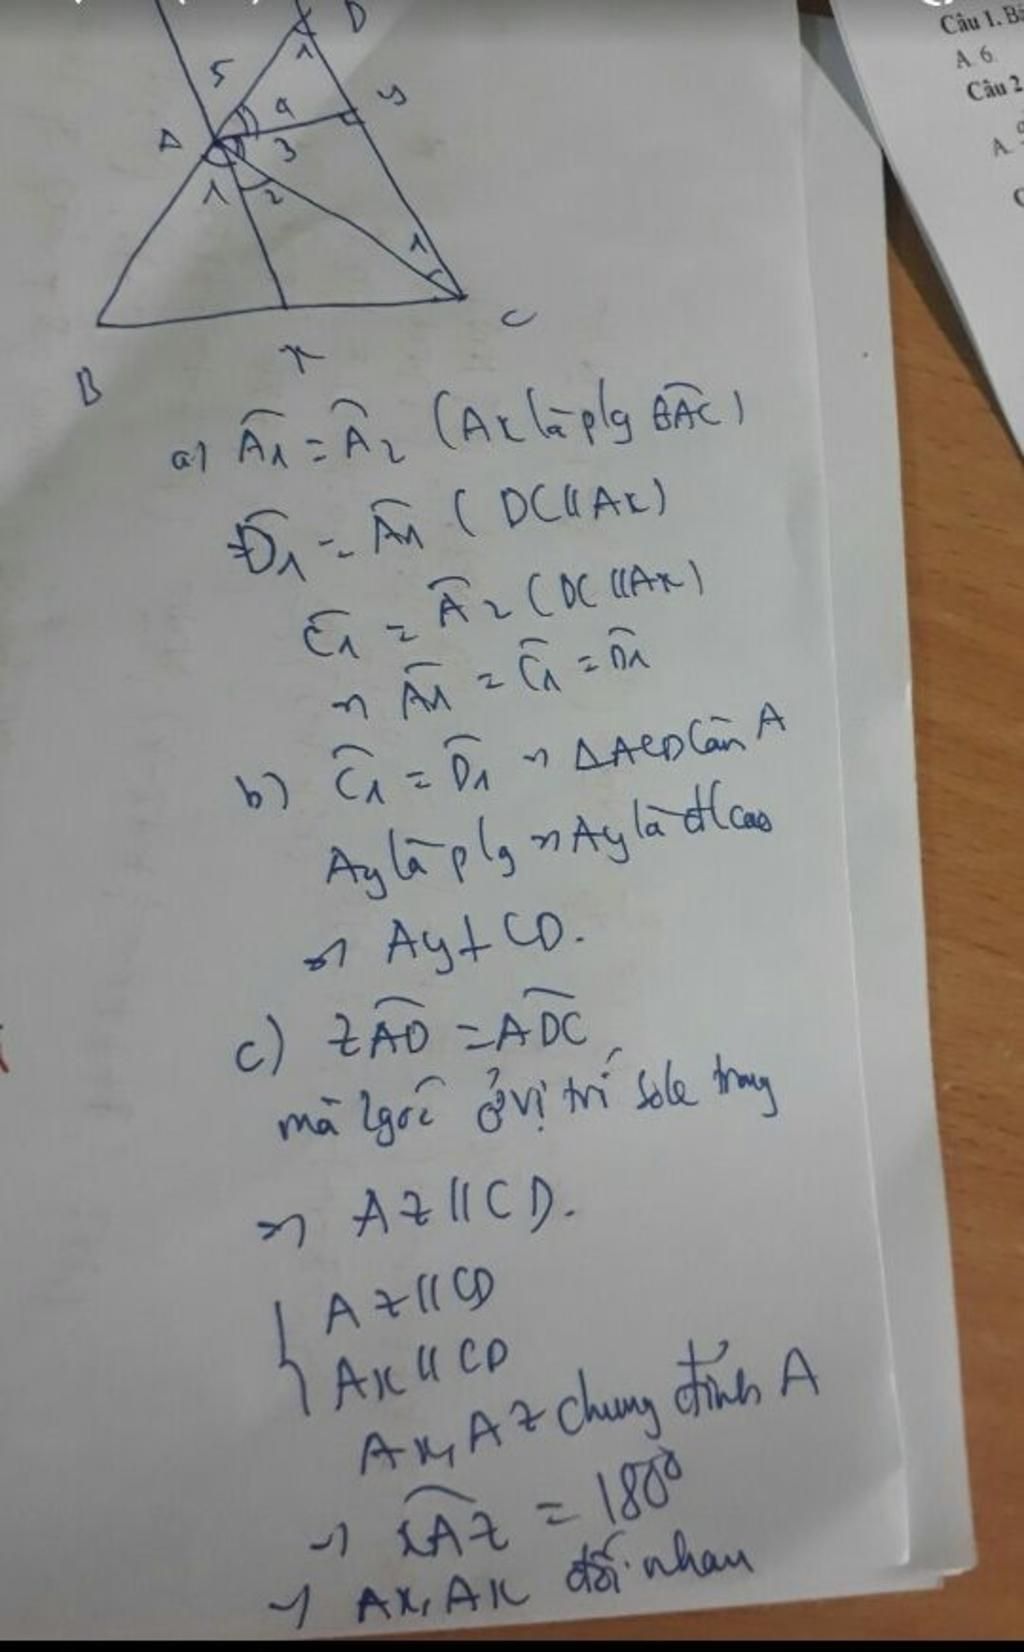 D
5
1
4
y
A
3
1
2
1
C
B
x
a) Â1 = Â2 (Ax là p/g BAC)
D̂1 = Â1 (DC // Ax)
Ĉ1 = Â2 (DC // Ax)
=> Â1 = Ĉ1 = D̂1
b) Ĉ1 = D̂1 => ΔACD cân A
Ay là p/g => Ay là đ/cao
=> Ay ⊥ CD.
c) zAD = ADC
mà 2 góc ở vị trí sole trong
=> Az // CD.
{ Az // CD
Ax // CD
Ax, Az chung đỉnh A
=> xAz = 180°
=> Ax, Ax đối nhau
Câu 1. B
A. 6.
Câu 2
A.